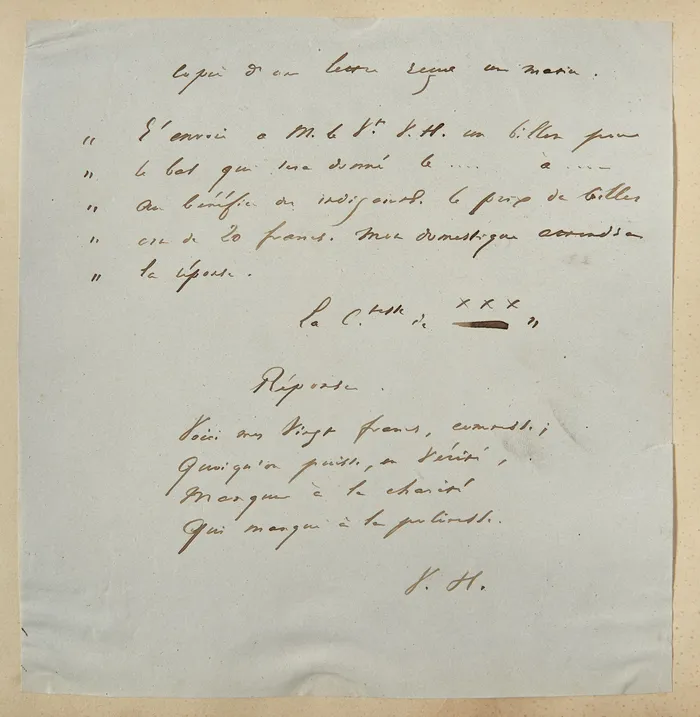 Copie d'une lettre reçue un matin.
" J'envoie à M. le Vte V. H. un billet pour
" le bal qui sera donné le .... à ....
" au bénéfice des indigents. Le prix du billet
" est de 20 francs. Mon domestique attendra
" la réponse.
La C.tesse de x x x "
Réponse.
Voici mes Vingt francs, comtesse;
Quoiqu'on puisse, en vérité,
Manquer à la charité
Qui manque à la politesse.
V. H.